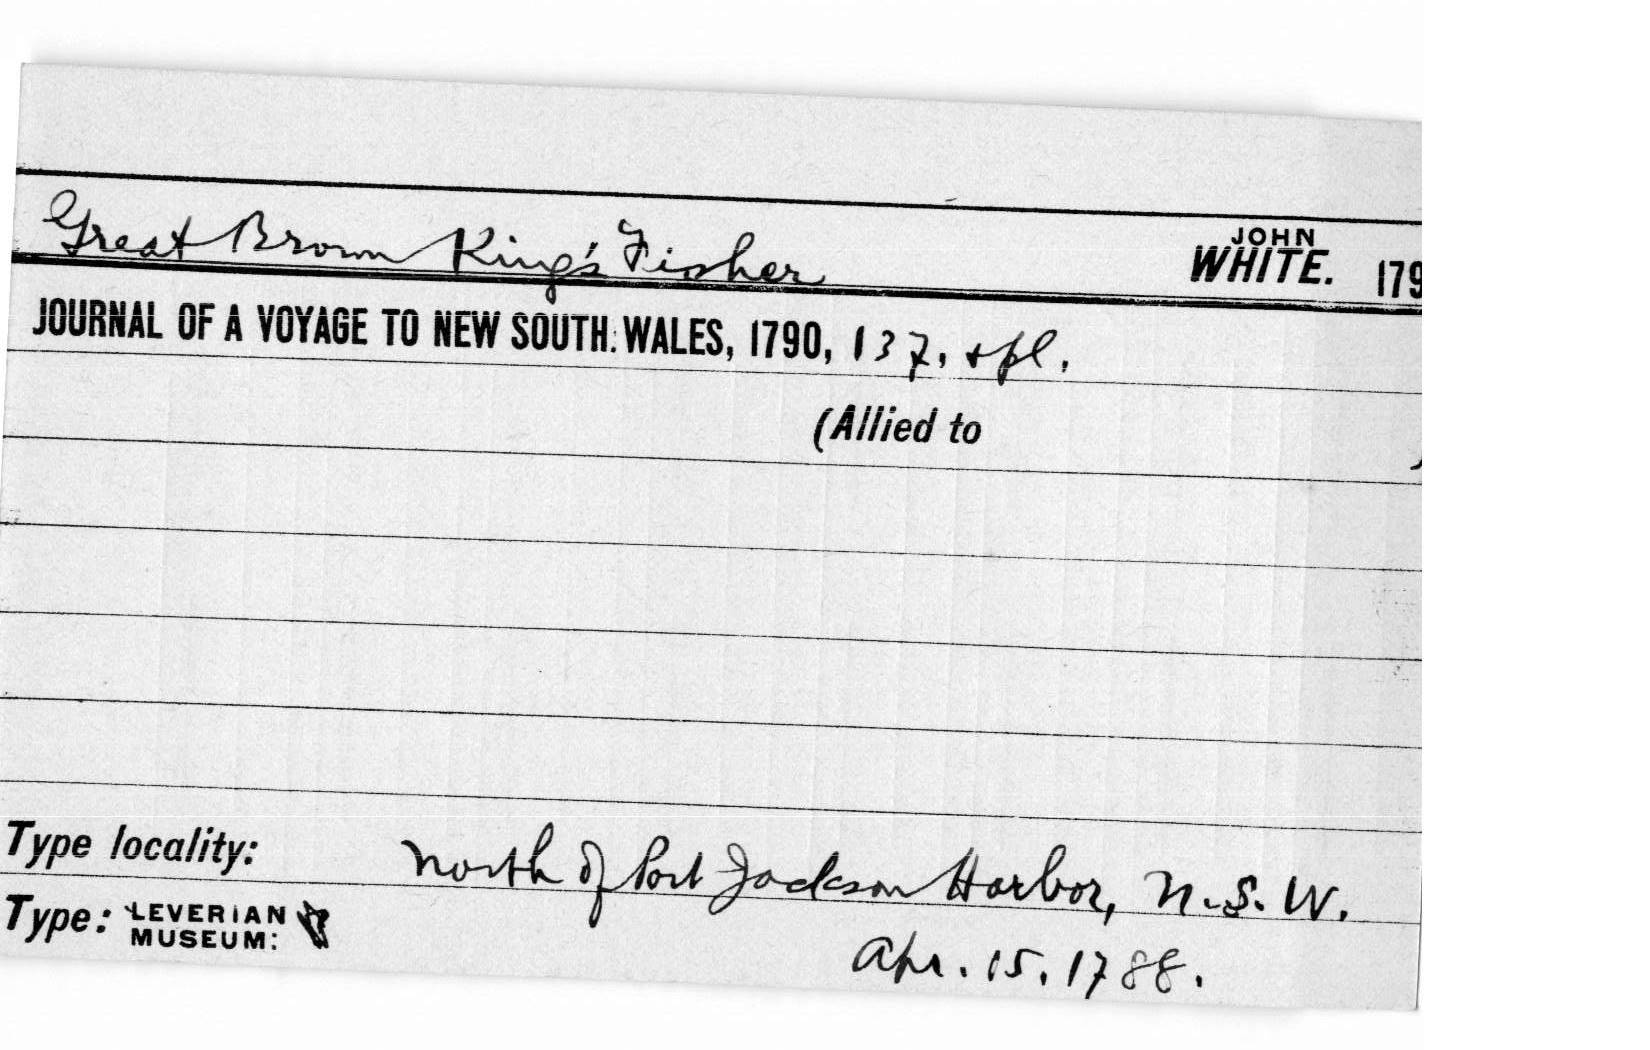 Great Brown King's Fisher JOHN WHITE. 179
JOURNAL OF A VOYAGE TO NEW SOUTH WALES, 1790, 137, + pl.
(Allied to )
Type locality: North of Port Jackson Harbor, N.S.W.
Type: LEVERIAN MUSEUM: Apr. 15, 1788.